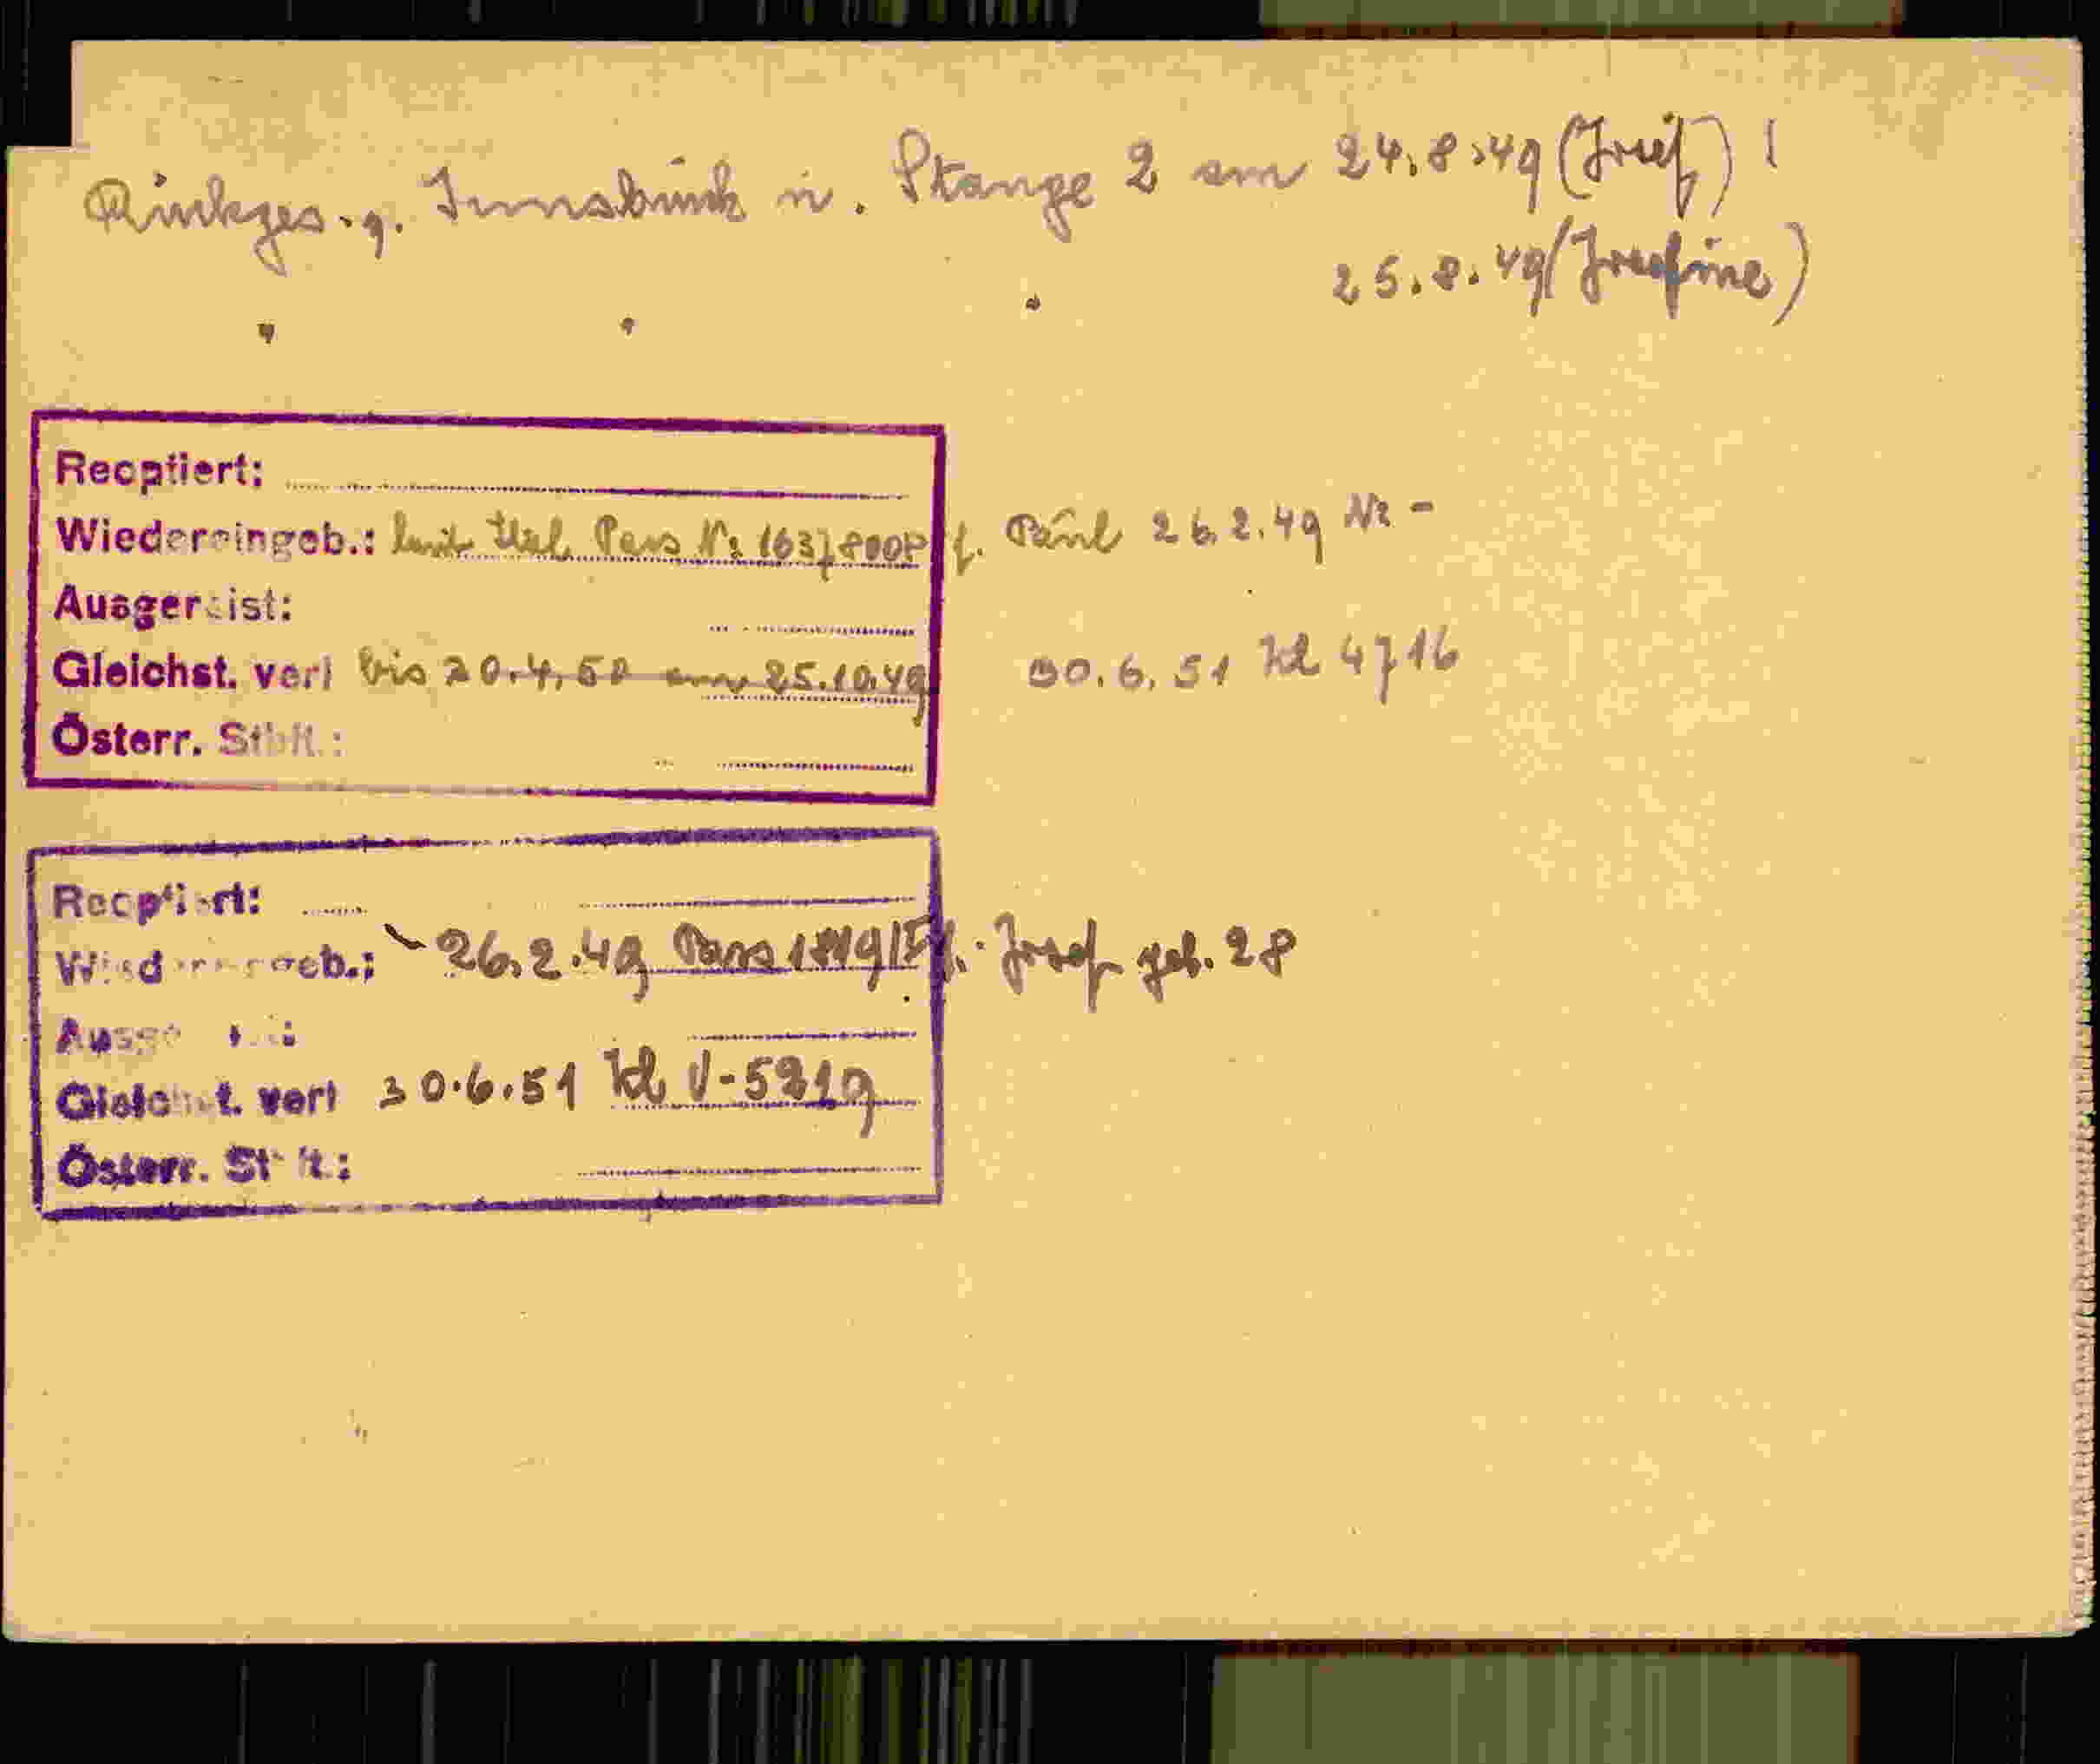 Rückges. g. Innsbruck n. Stange 2 am 24.8.49 (Josef) !
" " " 25.8.49 (Josefine)
Reoptiert:
Wiedereingeb.: laut ital. Pass Nr 16378008 f. Paul 26.2.49 Nr -
Ausgereist:
Gleichst. verl bis 20.4.50 am 25.10.49 30.6.51 Kl 4716
Österr. Stbft.:
Reoptiert:
Wiedereingeb.: 26.2.49 Pass f. Josef geb. 28
Ausgereist:
Gleichst. verl 30.6.51 Kl V-5219
Österr. Stbft.: